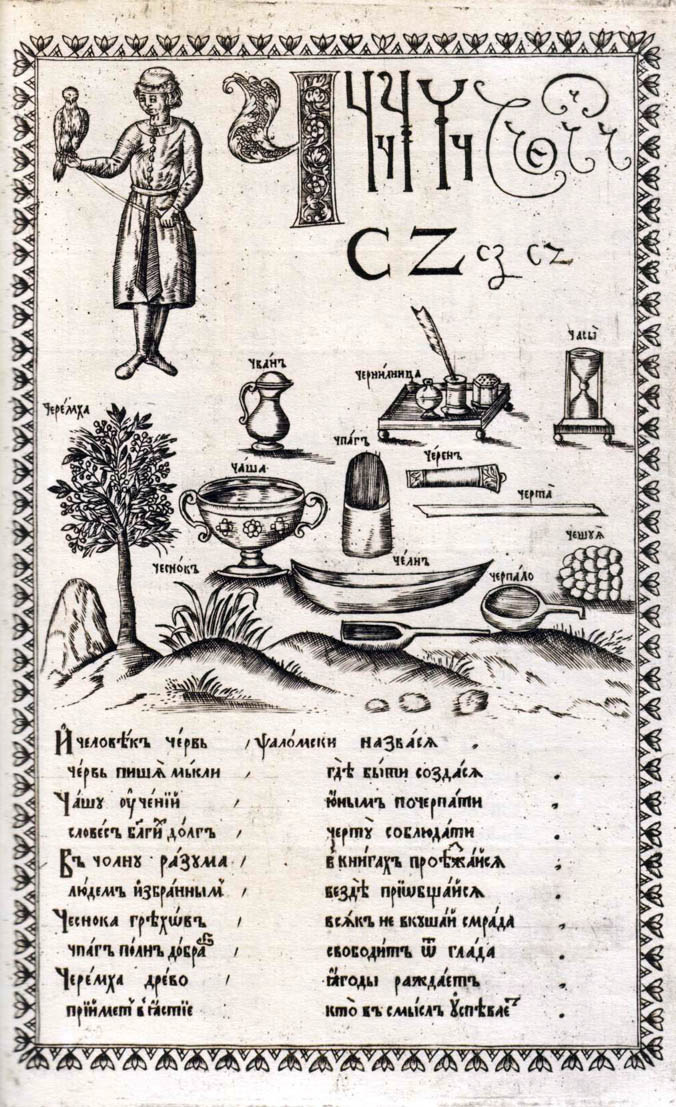 Ч Ч Ч Ч Ч ч ч ч
C Z cz cz
часы̀
чва́нъ
черни́лница
чере́мха
чпагъ
че́ренъ
чаша
черта̀
чешуѧ̀
чесно́къ
че́лнъ
черпа́ло
И҆ человѣ́къ че́рвь / ѱало́мски назва́сѧ .
че́рвь пишѧ̀ мы́сли / гдѣ̀ бы́ти созда́сѧ .
Ча́шу ᲂу҆че́нїй / ю҆́нымъ почерпа́ти ,
слове́съ бл҃ги́хъ до́лгъ / черту̀ соблюда́ти .
Въ чолну̀ ра́зума / в̾ кни́гахъ проѣжжа́йсѧ ;
лю́демъ и҆збра́нным̾ / вездѣ̀ прїѡбща́йсѧ .
Чеснока̀ грѣхѡ́въ / всѧ́къ не вкуша́й смра́да ,
чпа́гъ по́лнъ добра̀ / свободи́тъ ѿ гла́да .
Чере́мха дре́во / ꙗ҆́годы ражда́етъ
прїи́метъ в̾ ꙗ҆́стїе / кто̀ въ смы́слъ ᲂу҆спѣва́етъ .